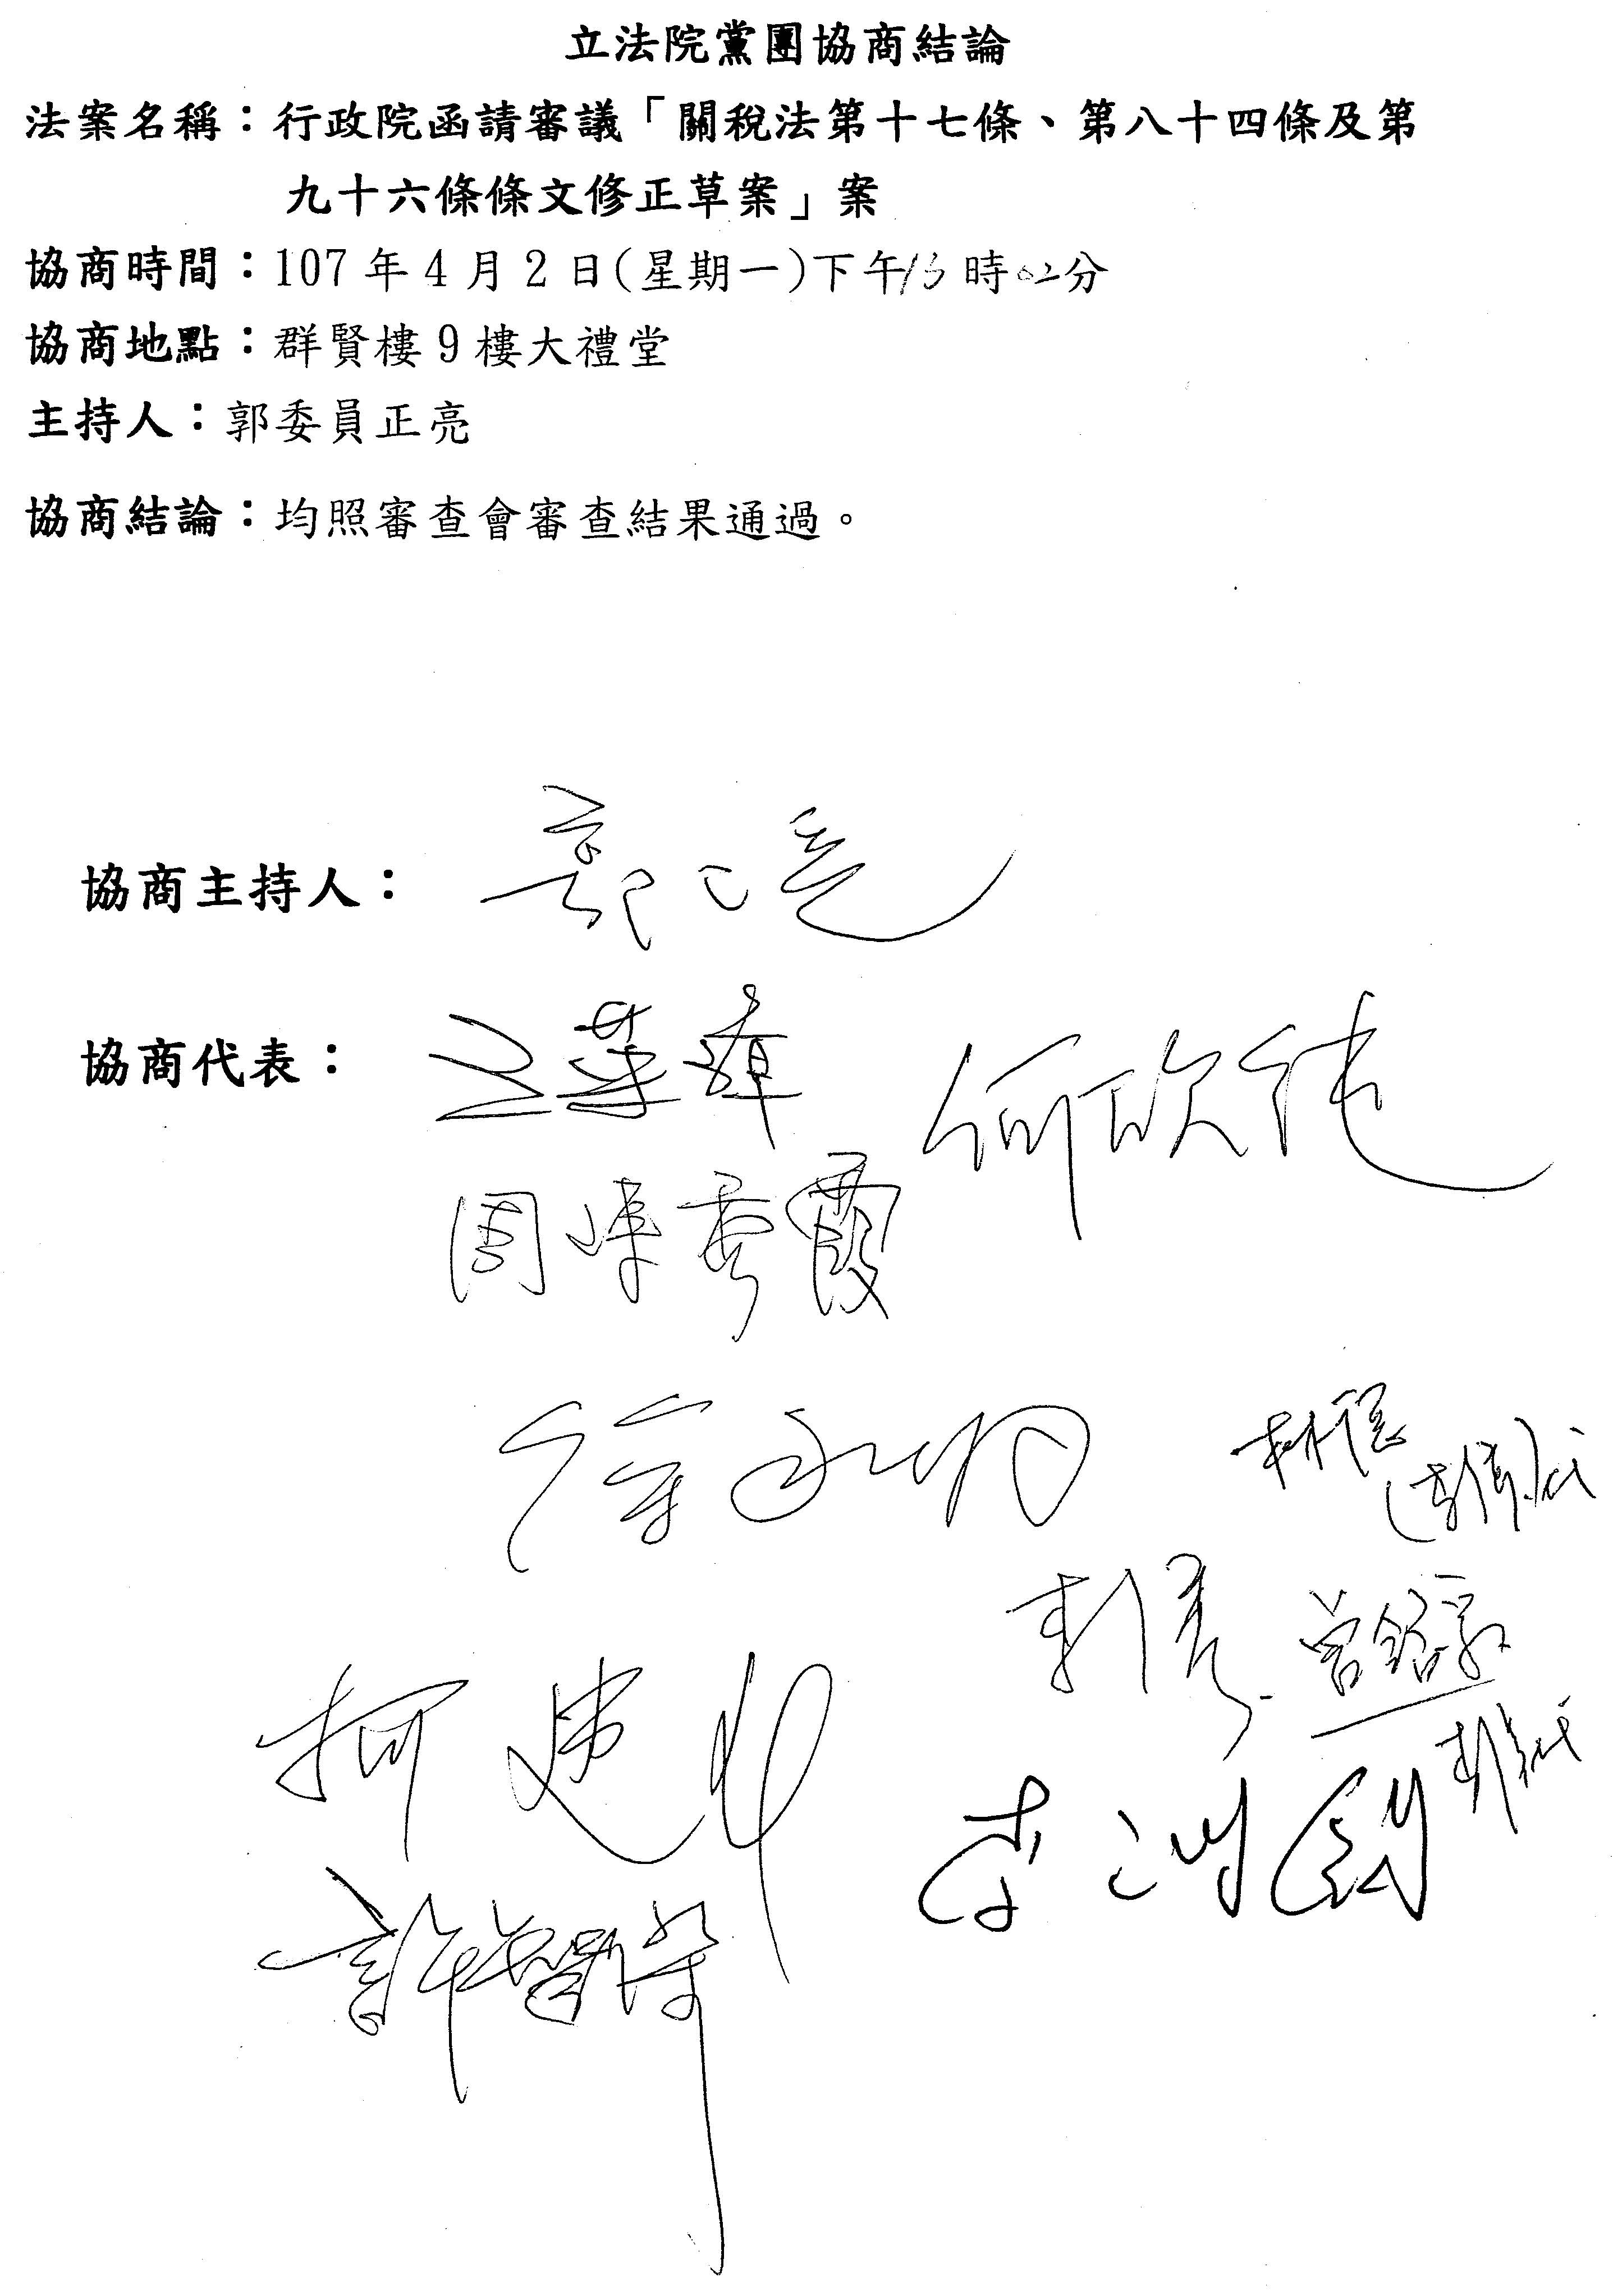 立法院黨團協商結論
法案名稱：行政院函請審議「關稅法第十七條、第八十四條及第
九十六條條文修正草案」案
協商時間：107年4月2日(星期一)下午13時02分
協商地點：群賢樓9樓大禮堂
主持人：郭委員正亮
協商結論：均照審查會審查結果通過。
協商主持人：郭正亮
協商代表：王榮璋 何欣純
周陳秀霞
徐永明
曾銘宗
柯建銘 李鴻鈞
許智傑